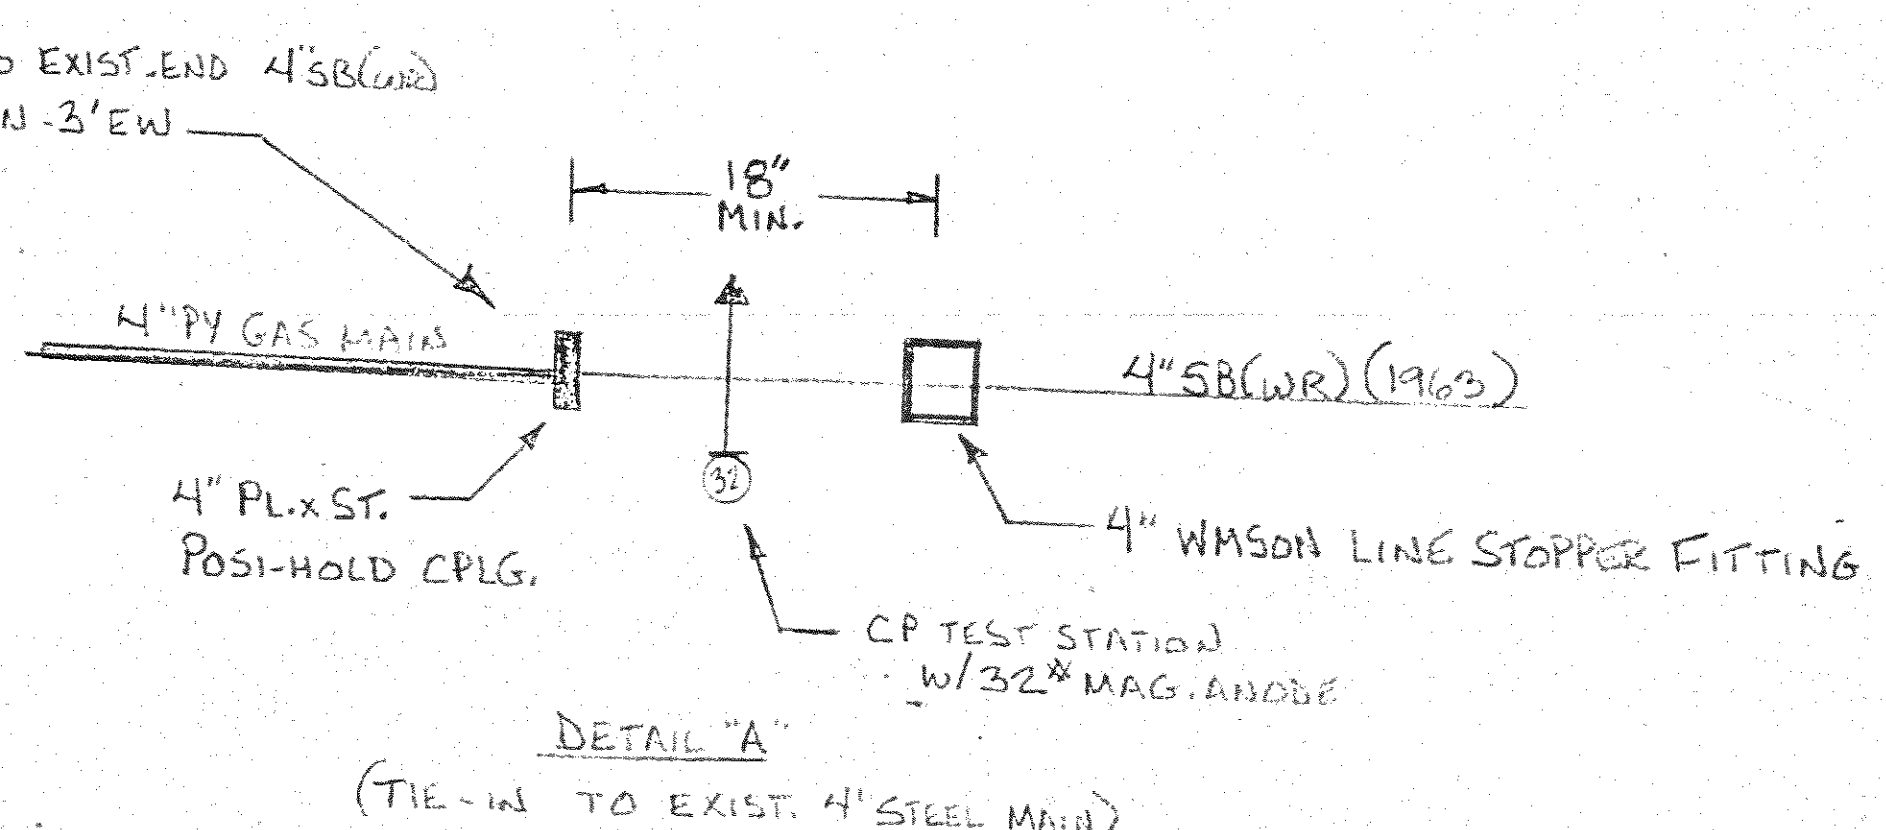 EXIST. END 4" SB(WR)
-3' EW
18"
MIN.
4" PY GAS MAIN
4" SB(WR)(1963)
4" PL. x ST.
POSI-HOLD CPLG.
32
4" WMSON LINE STOPPER FITTING
CP TEST STATION
W/32# MAG. ANODE
DETAIL "A"
(TIE-IN TO EXIST. 4" STEEL MAIN)